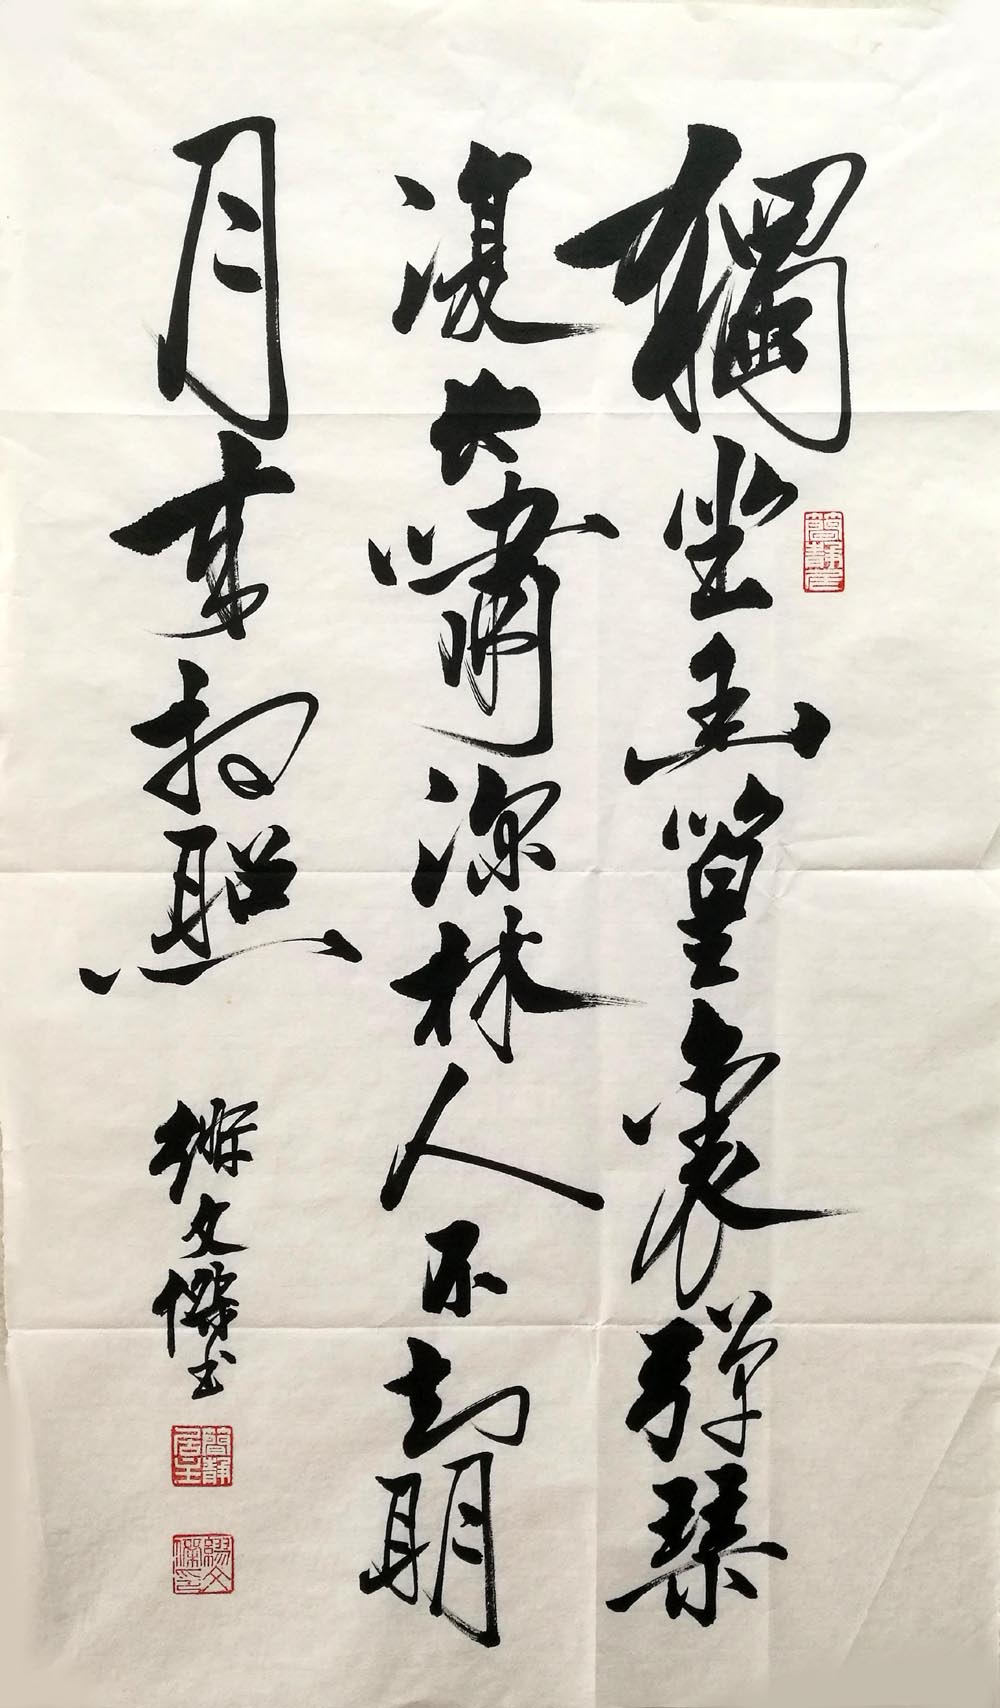 獨坐幽篁裏彈琴
復長嘯深林人不知明
月來相照
繆文傑書
簡靜居
簡靜居主
繆文傑印